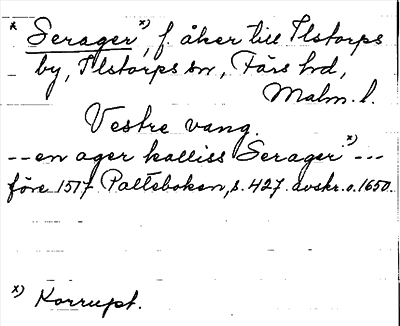 * Serager x), f. åker till Ilstorps
by, Ilstorps sn, Färs hd,
Malm. l.
Vestre vang.
-- en ager kalliss Serager x) ---
före 1517. Palteboken, s. 427. avskr. o. 1650.
x) Korrupt.